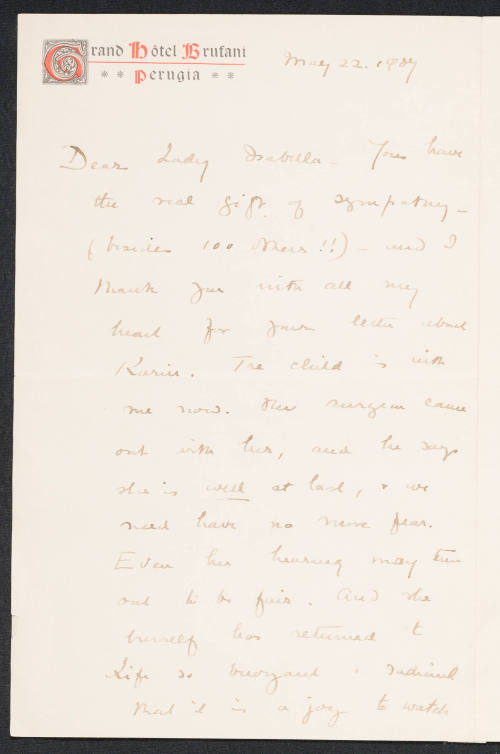 Grand Hôtel Brufani
Perugia
May 22. 1907
Dear Lady Isabella - You have
the real gift of sympathy -
(besides 100 others !!) - and I
thank you with all my
heart for your letter about
Karin. The child is with
me now. The surgeon came
out with her, and he says
she is well at last, & we
need have no more fear.
Even her hearing may turn
out to be fair. And she
herself has returned to
Life so buoyant & radiant
that it is a joy to watch